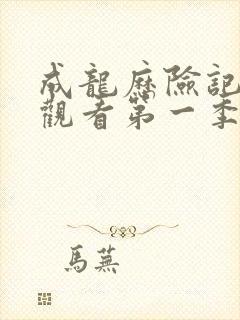 成龍歷險記
觀看第一季
馬蕪